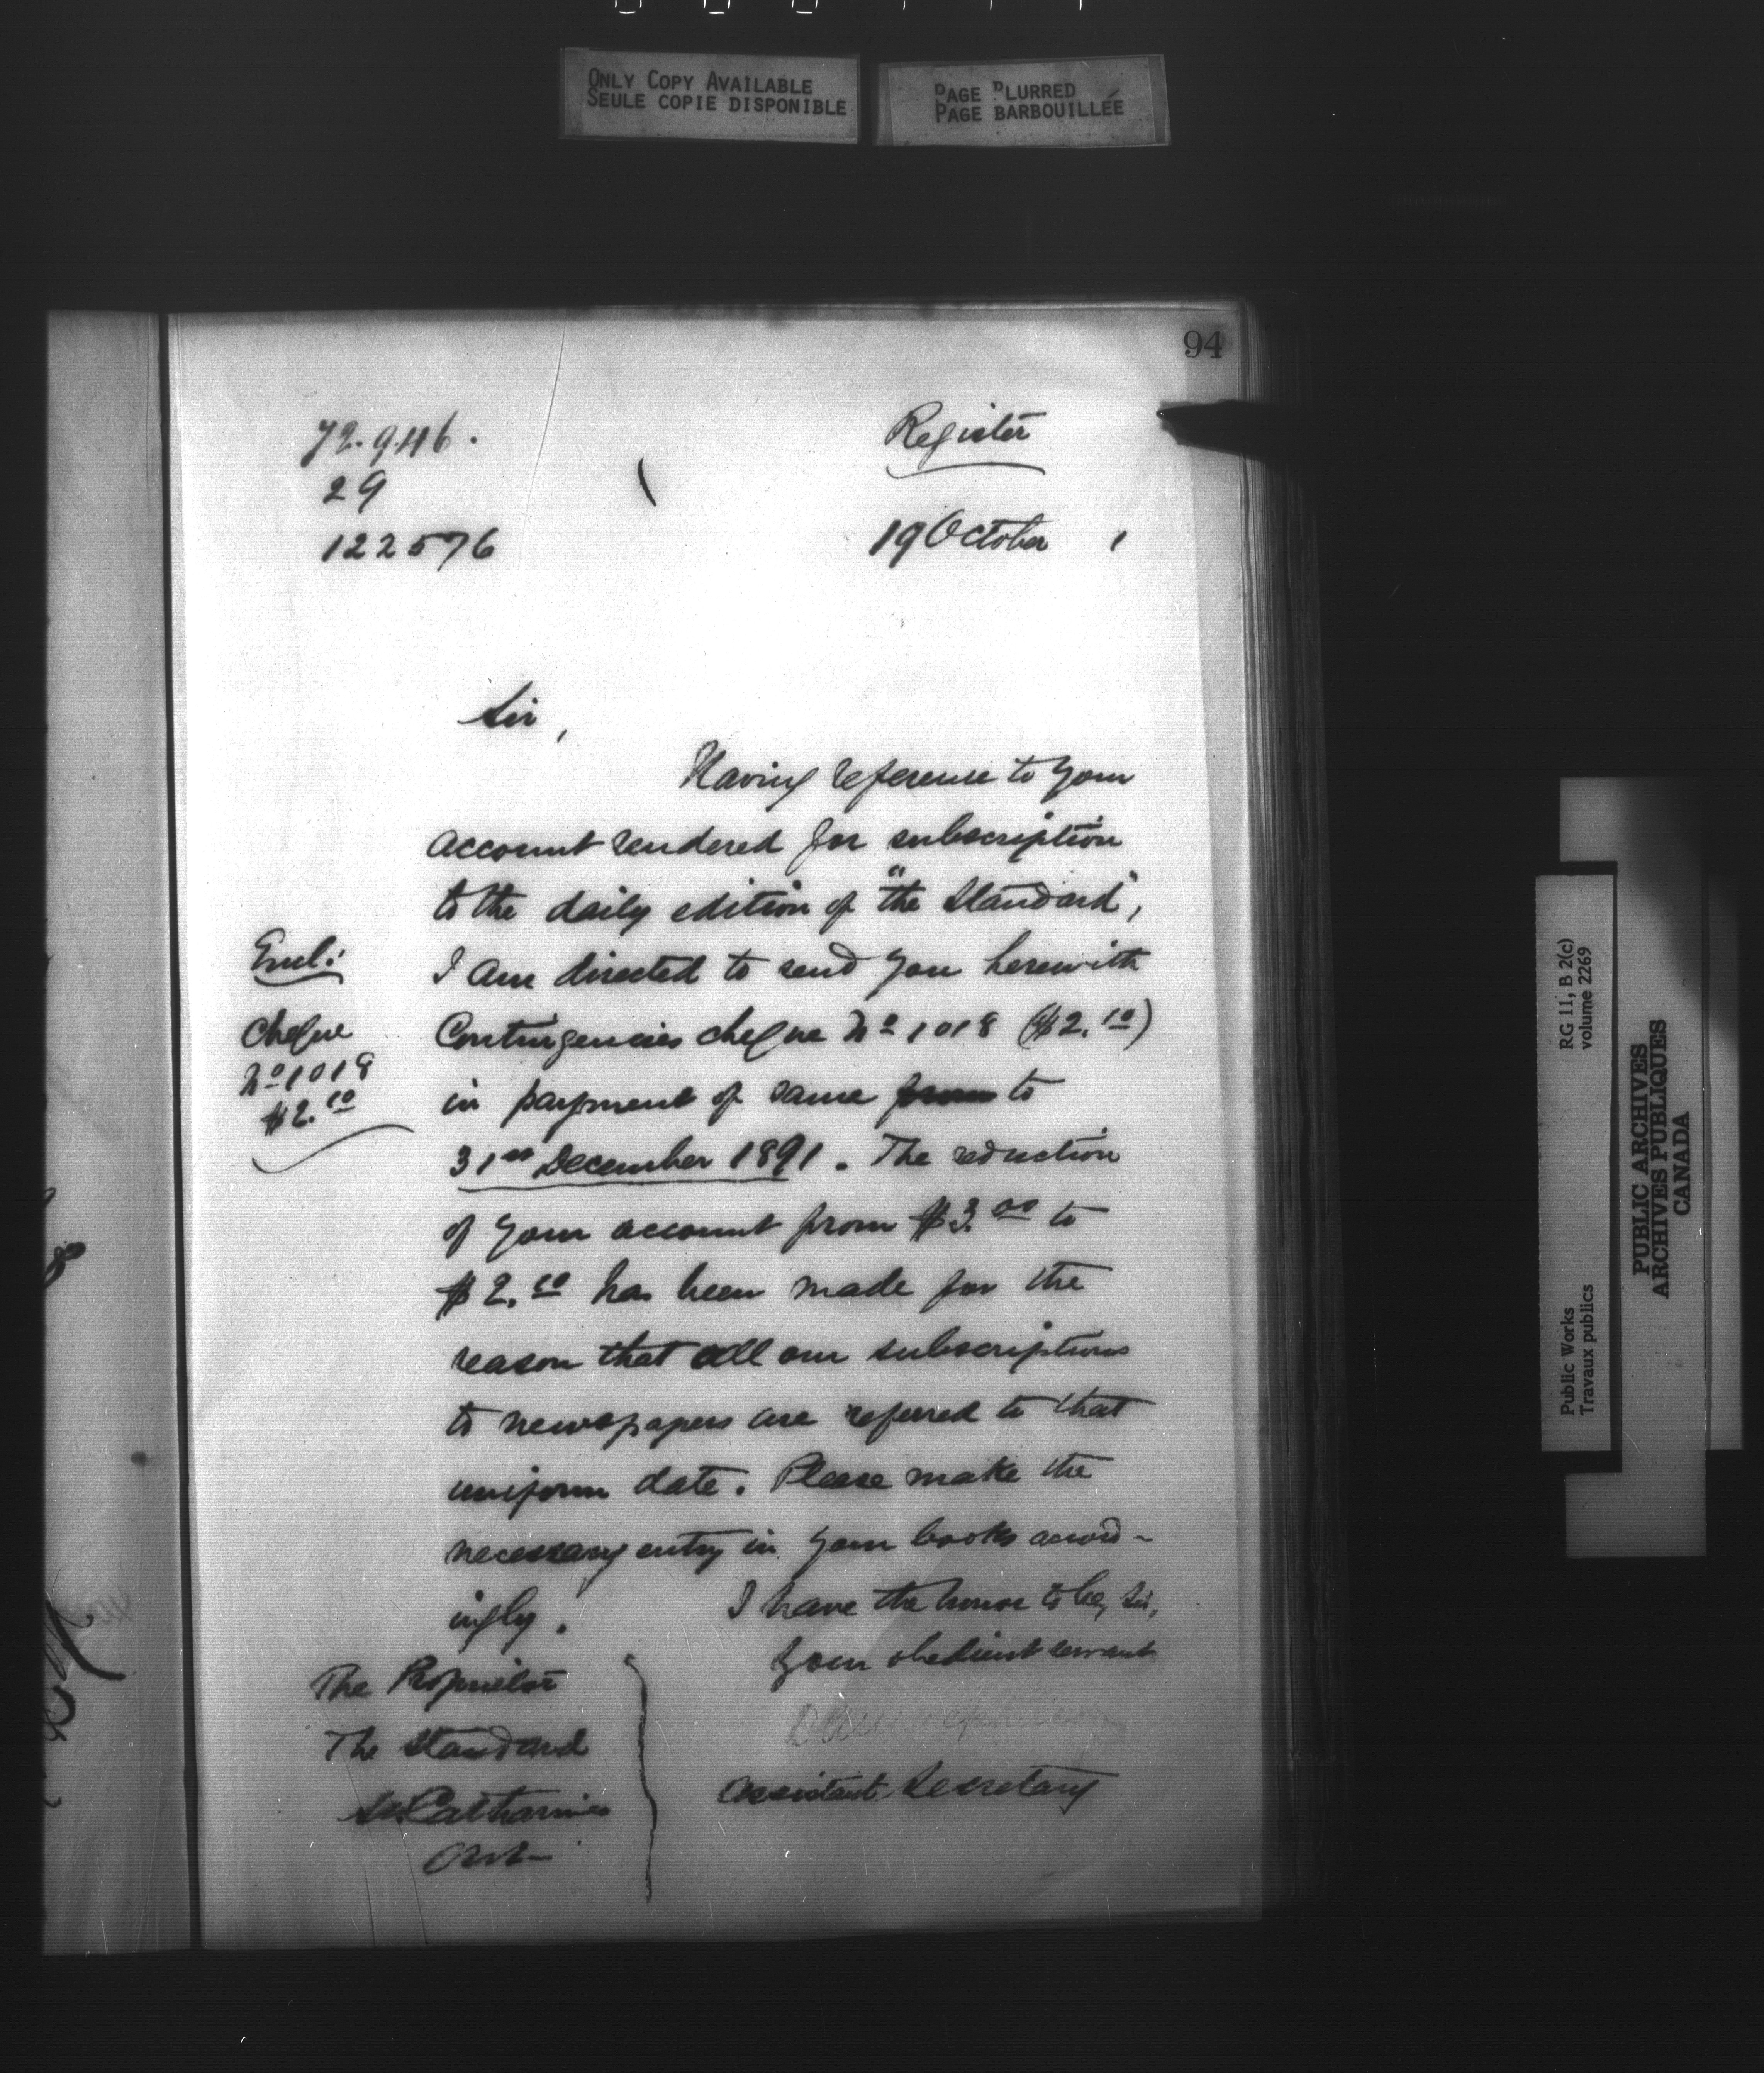 ONLY COPY AVAILABLE
SEULE COPIE DISPONIBLE
PAGE BLURRED
PAGE BARBOUILLÉE
94
72.946.
29
122576
Register
19 October 1
Sir,
Having reference to your
account rendered for subscription
to the daily edition of "the Standard",
I am directed to send you herewith
Contingencies cheque No 1018 ($2.10)
in payment of same from to
31st December 1891. The reduction
of your account from $3.00 to
$2.10 has been made for the
reason that all our subscriptions
to newspapers are referred to that
uniform date. Please make the
necessary entry in your books accord-
ingly.
Encl:
Cheque
No 1018
$2.10
I have the honor to be, Sir,
Your obedient servant
Assistant Secretary
The Proprietor
The Standard
St. Catharines
Ont-
RG 11, B 2(c)
volume 2269
Public Works
Travaux publics
PUBLIC ARCHIVES
ARCHIVES PUBLIQUES
CANADA